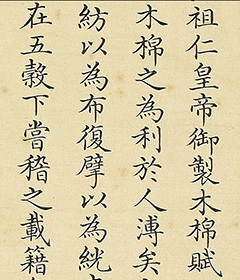 祖仁皇帝御製木棉賦
木棉之為利於人溥矣
紡以為布復擘以為絖
在五穀下嘗稽之載籍